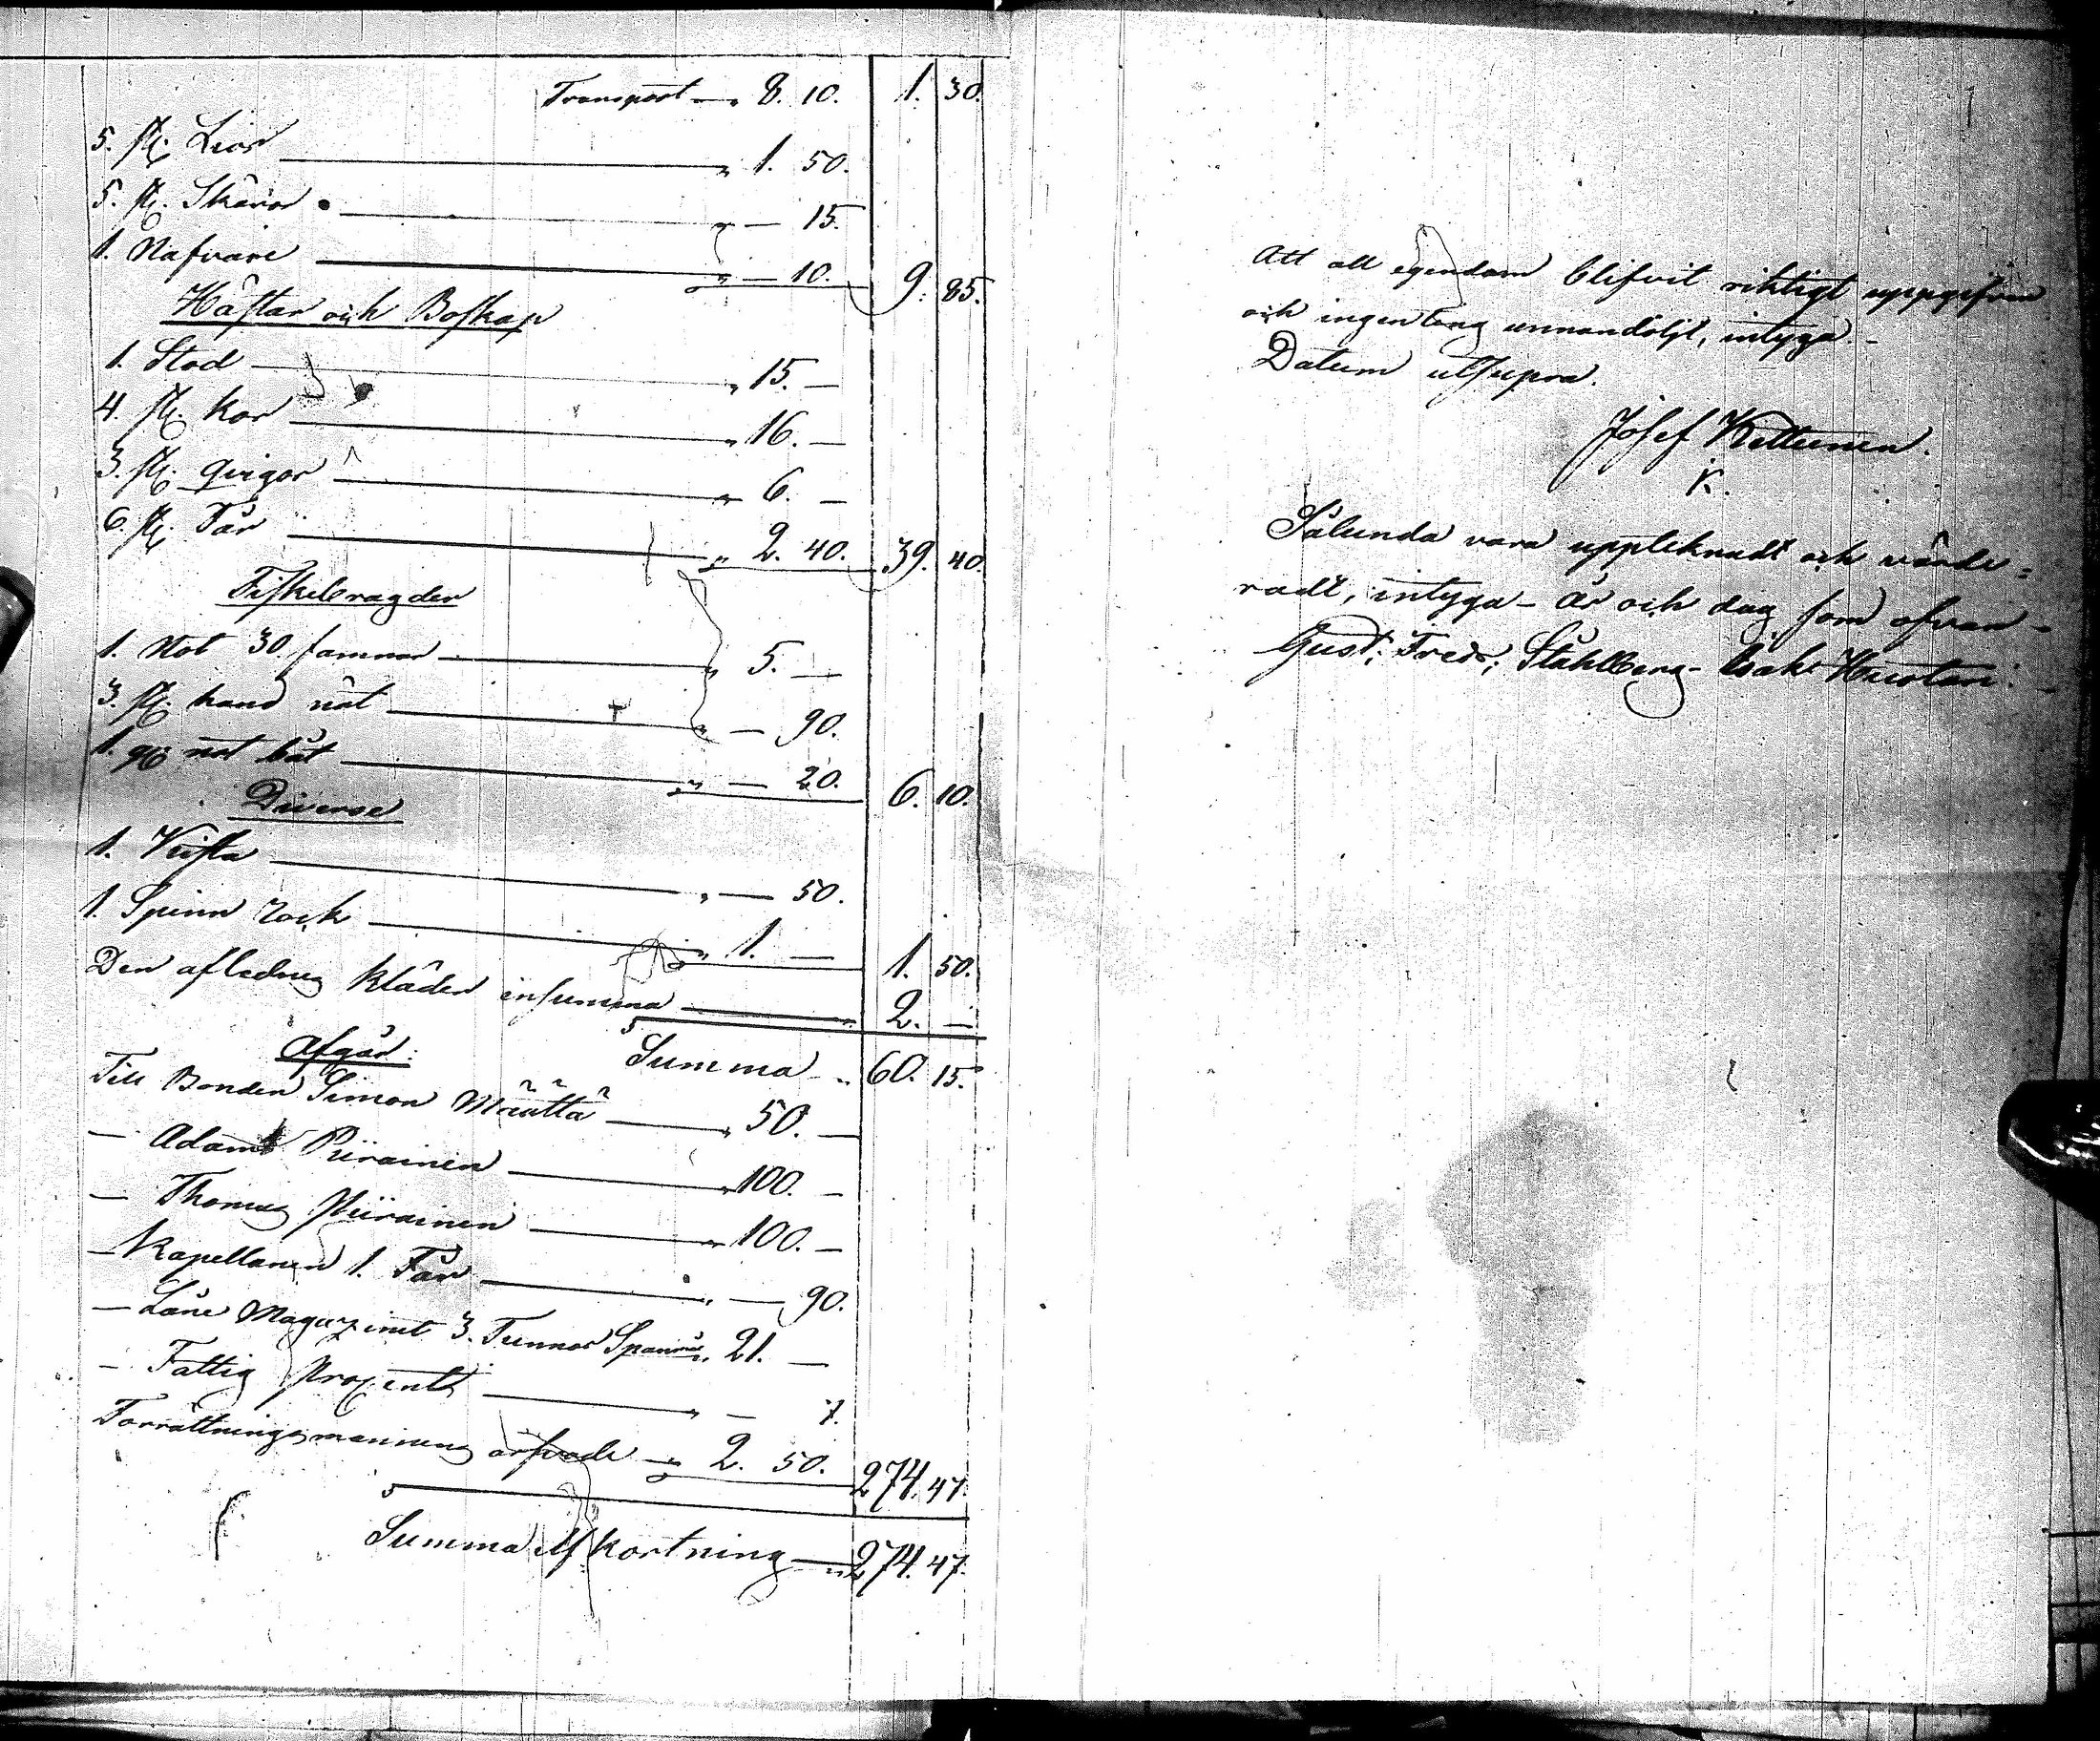 Transport — „ 8. 10. 1. 30.
5. st. Liar — „ 1. 50.
5. st. Skäror — „ — 15.
1. Nafvare — „ — 10. 9. 85.
Hästar och Boskap
1. Stod — „ 15. —
4. st. kor — „ 16. —
3. st. qvigor — „ 6. —
6. st. Får — „ 2. 40. 39. 40.
Fiskebragder
1. Not 30 famnar — „ 5. —
3. st. hand nät — „ — 90.
1. not båt — „ — 20. 6. 10.
Diverse
1. Kista — „ — 50.
1. Spinn rock — „ 1. — 1. 50.
Den aflednes kläder insumma — „ 2. —
Summa „ 60. 15.
Afgår:
Till Bonden Simon Määttä — „ 50. —
— Adam Piirainen — „ 100. —
— Thomas Piirainen — „ 100. —
— Kapellanen 1. Får — „ — 90.
— Låne Magazinet 3. Tunnor Spanmål „ 21. —
— Fattig procent — „ — 7.
Förrättningsmännens arfvode — „ 2. 50. 274. 47.
Summa Afkortning — „ 274. 47.
Att all egendom blifvit riktigt uppgifven
och ingenting unnandöljt, intyga. —
Datum utsupra.
Josef Kettunen.
Sålunda vara uppteknadt och värde=
radt, intyga — år och dag som ofvan —
Gust: Fredr: Ståhlberg — Isak Huotari.